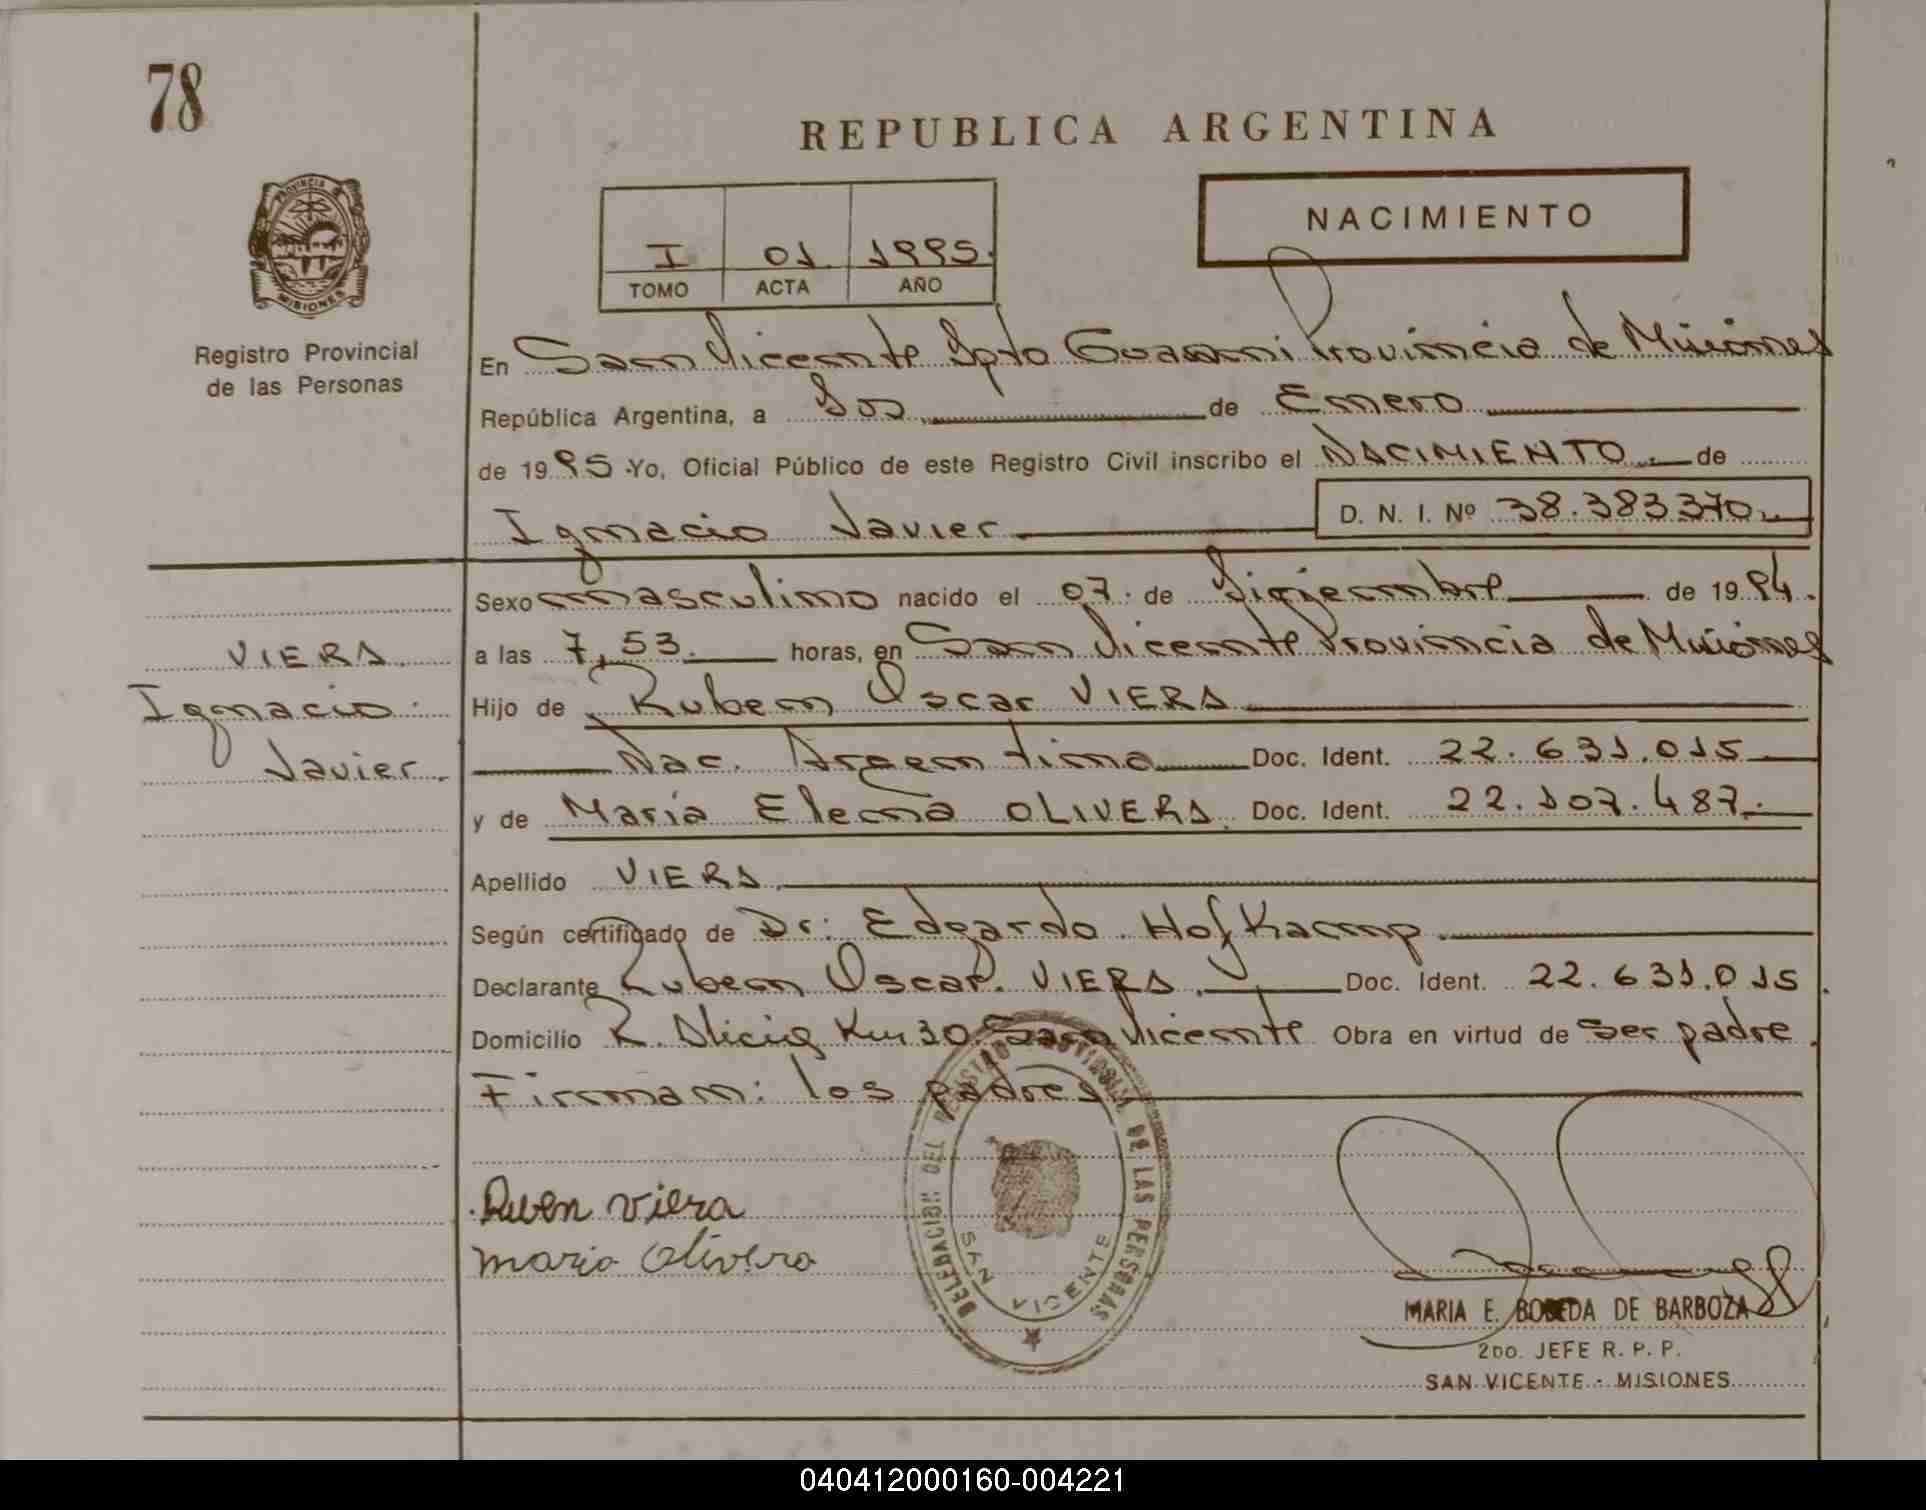 78
REPUBLICA ARGENTINA
NACIMIENTO
I 01 1995.
TOMO ACTA AÑO
PROVINCIA DE
MISIONES
Registro Provincial
de las Personas
En San Vicente Dpto Guarani Provincia de Misiones
República Argentina, a Dos de Enero
de 1995 Yo, Oficial Público de este Registro Civil inscribo el NACIMIENTO de
Ignacio Javier D. N. I. Nº 38.383370
Sexo masculino nacido el 07 de Diciembre de 1994.
VIERA a las 7,53. horas, en San Vicente Provincia de Misiones
Ignacio Hijo de Ruben Oscar VIERA
Javier. Nac. Argentina Doc. Ident. 22.631.015
y de Maria Elena OLIVERA. Doc. Ident. 22.107.487.
Apellido VIERA.
Según certificado de Dr: Edgardo Hofkamp.
Declarante Ruben Oscar VIERA. Doc. Ident. 22.631.015
Domicilio R. Km 30 San Vicente Obra en virtud de ser padre.
Firman: los padres
Ruben Viera
Maria Olivera
DELEGACION DEL REGISTRO PROVINCIAL DE LAS PERSONAS
SAN VICENTE
MARIA E. BOBEDA DE BARBOZA
2DO. JEFE R. P. P.
SAN VICENTE - MISIONES
040412000160-004221